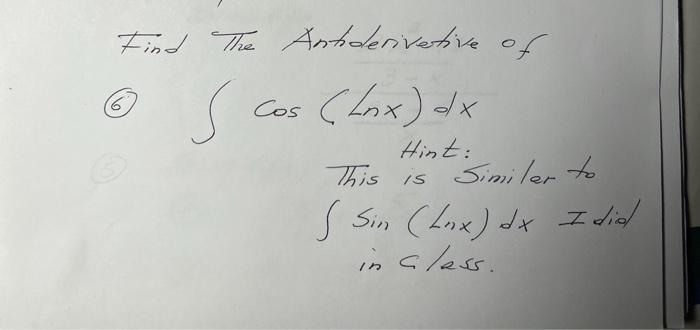 Find The Antiderivative of
⑥ ∫ cos (Lnx) dx
Hint:
This is Similar to
∫ Sin (Lnx) dx I did
in Class.